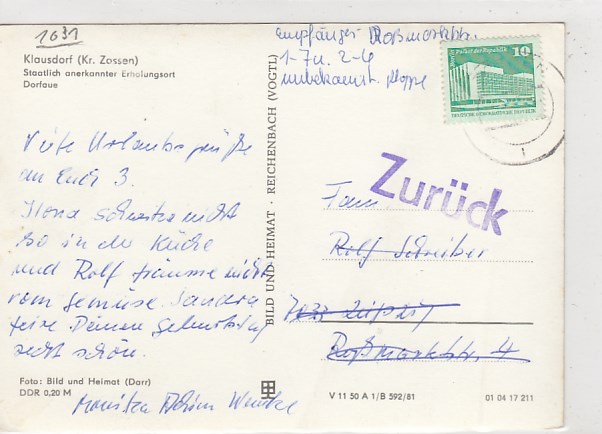 1631
Klausdorf (Kr. Zossen)
Staatlich anerkannter Erholungsort
Dorfaue
Viele Urlaubsgrüße
an Euch 3.
Ilona schwitze nicht
so in der Küche
und Rolf träume nicht
vom Gemüse. Sandra
feire Deinen Geburtstag
recht schön.
Foto: Bild und Heimat (Darr)
DDR 0,20 M
Monika Wenzke
BILD UND HEIMAT · REICHENBACH (VOGTL)
Empfänger Roßmarktstr.
1-7 u. 2-6
unbekannt.
10
Palast der Republik
DEUTSCHE DEMOKRATISCHE REPUBLIK
Zurück
Fam
Rolf Schreiber
7033 Leipzig
Roßmarktstr. 4
V 11 50 A 1/B 592/81
01 04 17 211